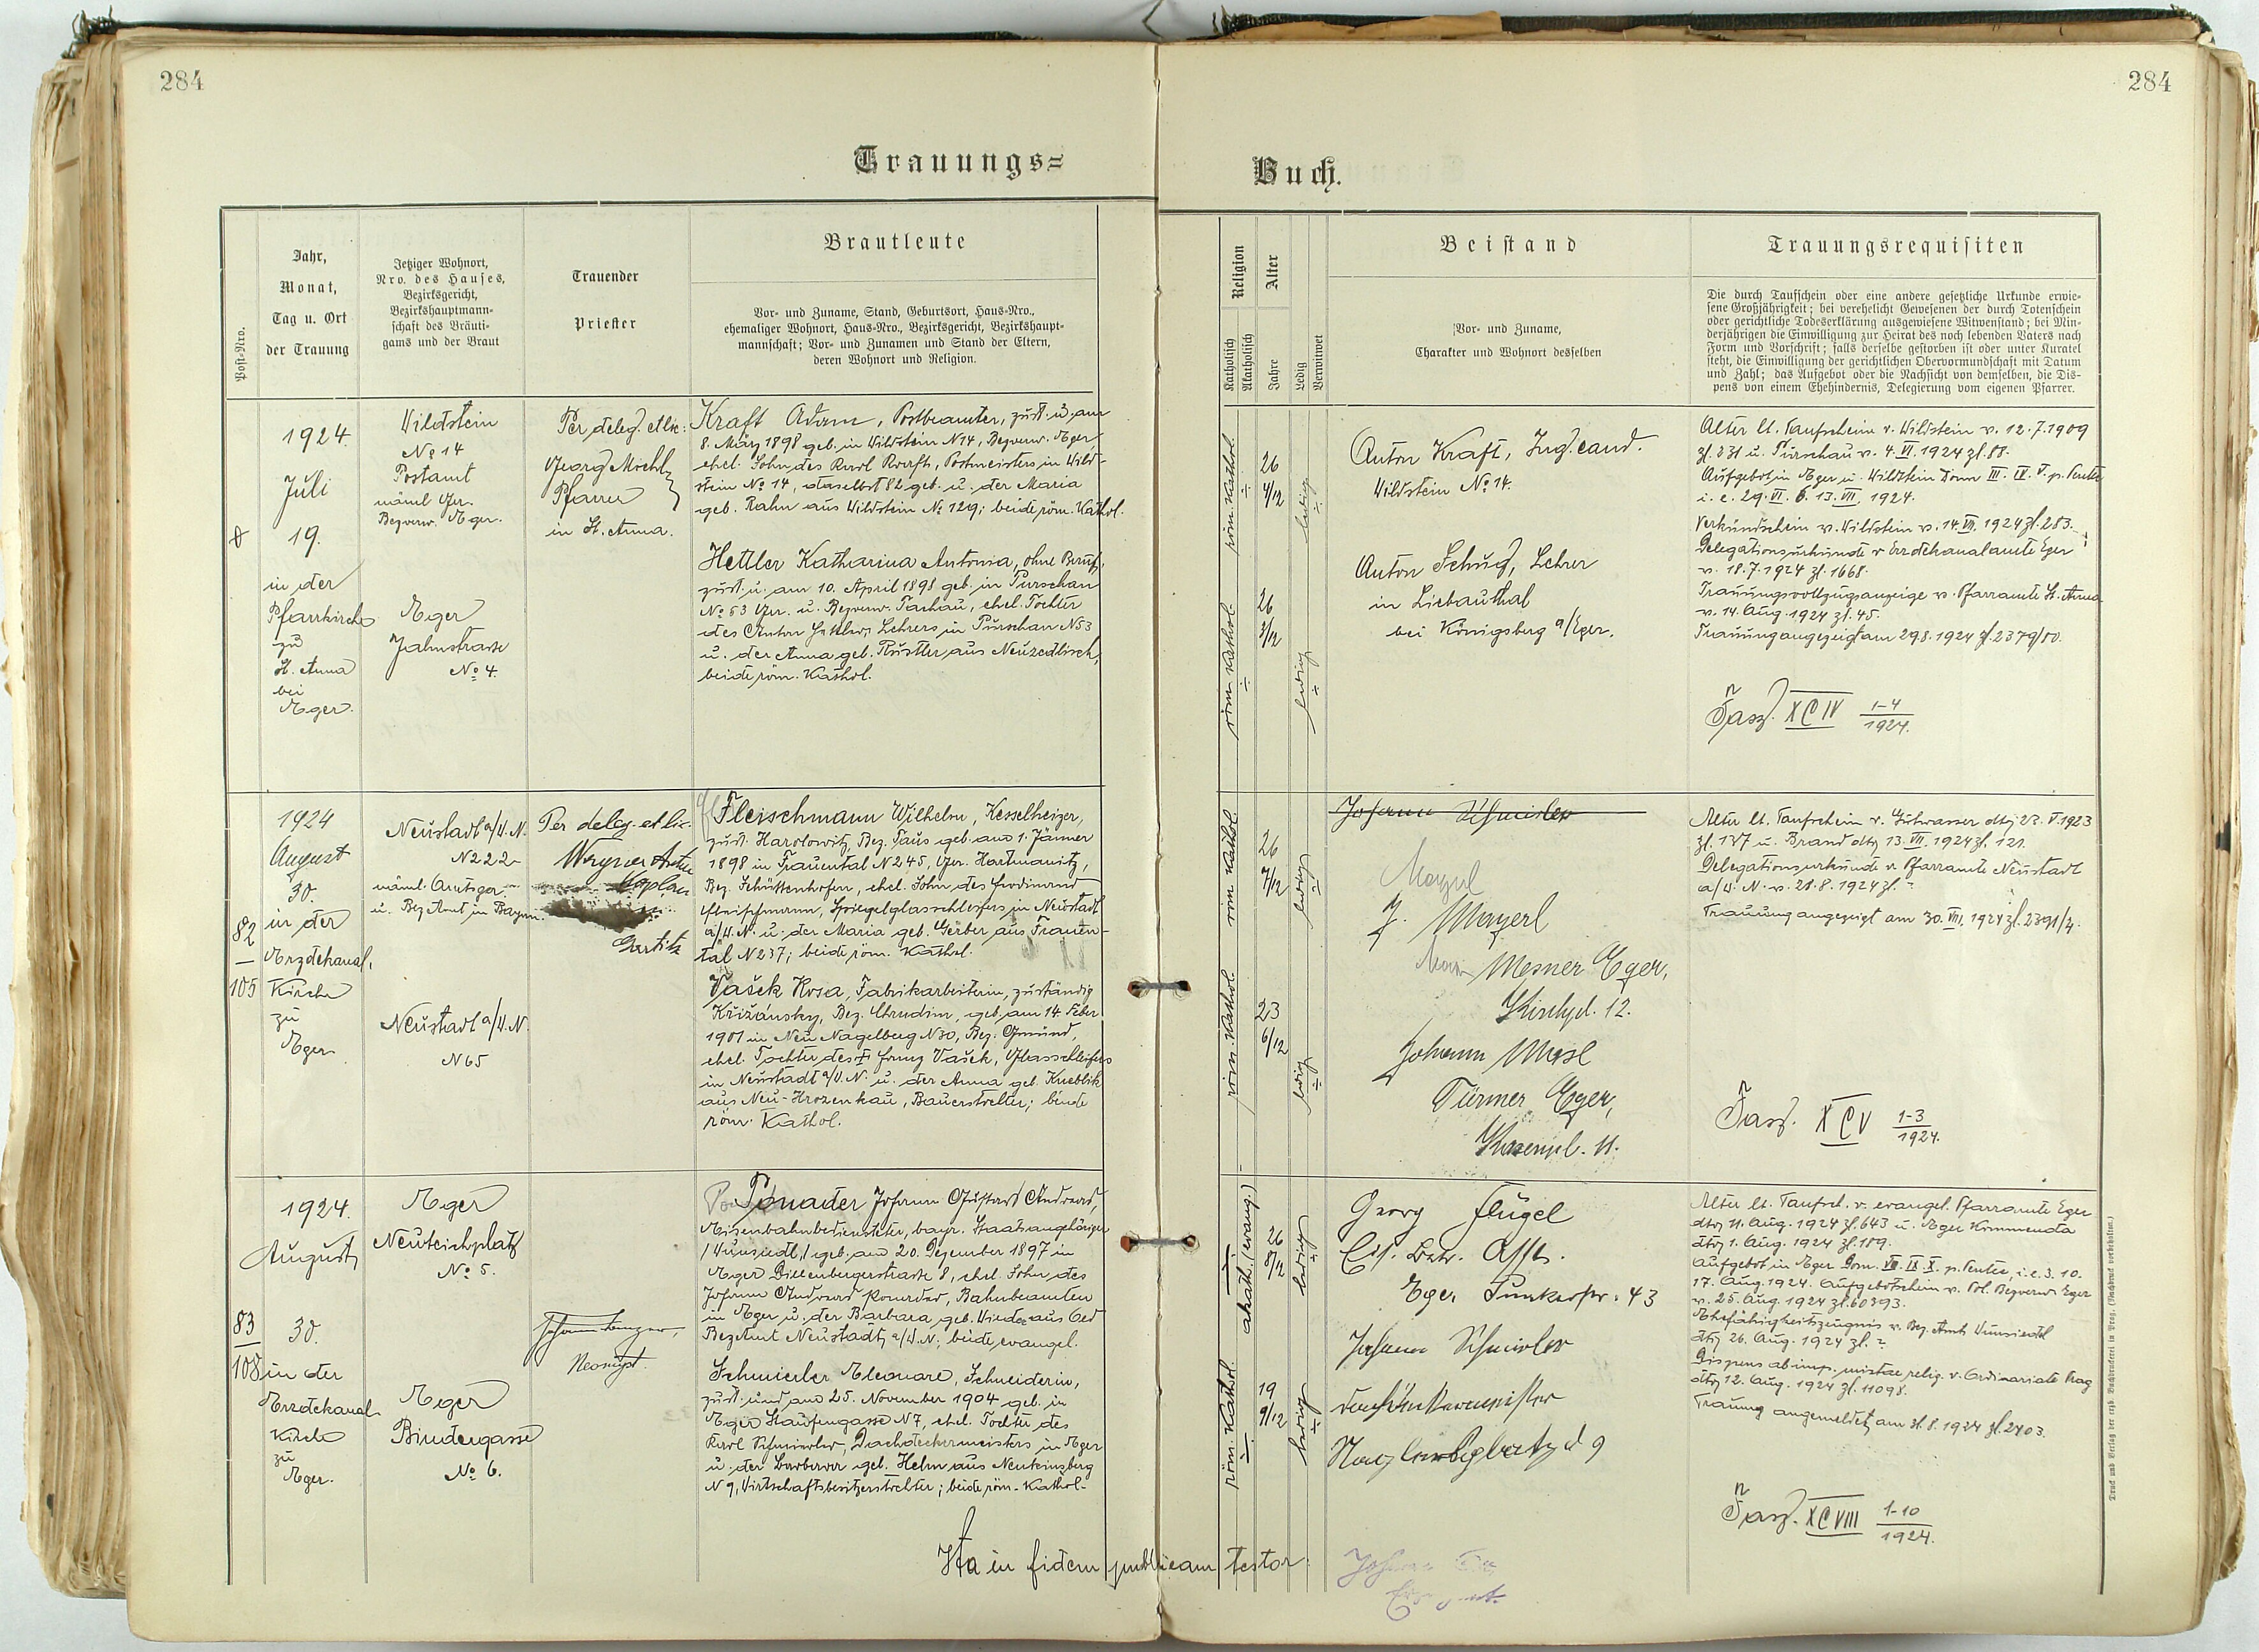 284
284
Trauungs=
Buch.
Post-Nro.
Jahr,
Monat,
Tag u. Ort
der Trauung
Jetziger Wohnort,
Nro. des Hauses,
Bezirksgericht,
Bezirkshauptmann-
schaft des Bräuti-
gams und der Braut
Trauender
Priester
Brautleute
Vor- und Zuname, Stand, Geburtsort, Haus-Nro.,
ehemaliger Wohnort, Haus-Nro., Bezirksgericht, Bezirkshaupt-
mannschaft; Vor- und Zunamen und Stand der Eltern,
deren Wohnort und Religion.
Religion
Katholisch
Akatholisch
Alter
Jahre
Ledig
Verwitwet
Beistand
Vor- und Zuname,
Charakter und Wohnort desselben
Trauungsrequisiten
Die durch Taufschein oder eine andere gesetzliche Urkunde erwie-
sene Großjährigkeit; bei verehelicht Gewesenen der durch Totenschein
oder gerichtliche Todeserklärung ausgewiesene Witwenstand; bei Min-
derjährigen die Einwilligung zur Heirat des noch lebenden Vaters nach
Form und Vorschrift; falls derselbe gestorben ist oder unter Kuratel
steht, die Einwilligung der gerichtlichen Obervormundschaft mit Datum
und Zahl; das Aufgebot oder die Nachsicht von demselben, die Dis-
pens von einem Ehehindernis, Delegierung vom eigenen Pfarrer.
1924.
Juli
19.
in der
Pfarrkirche
zu
St. Anna
bei
Eger.
Wildstein
No 14
Postamt
Bezverw. Eger.
Eger
Jahnstrasse
No 4.
Per deleg. et lic:
Georg Möchl
Pfarrer
in St. Anna.
Kraft Adam, Postbeamter, zust. u. am
8. März 1898 geb. in Wildstein N 14, Bezverw. Eger
ehel. Sohn des Karl Kraft, Postmeisters in Wild-
stein No 14, daselbst 82 geb. u. der Maria
geb. Rahn aus Wildstein No 129; beide röm. Kathol.
Hettler Katharina Antonia, ohne Beruf,
zust. u. am 10. April 1898 geb. in Purschau
No 53 Ger. u. Bezverw. Tachau, ehel. Tochter
des Anton Hettler, Lehrers in Purschau N 53
u. der Anna geb. aus Neuzedlisch,
beide röm. Kathol.
röm. Kathol.
26
4/12
ledig
röm. Kathol.
26
3/12
ledig
Anton Kraft, Ing. cand.
Wildstein No 14.
Anton Schug, Lehrer
in Liebauthal
bei Königsberg a/Eger.
Alter lt. Taufschein v. Wildstein v. 12.7.1909
zl. 231 u. Purschau v. 4.VI.1924 zl. 88.
Aufgebot in Eger u. Wildstein Dom III. IV. V. p. Pente
i. e. 29.VI. 6. 13.VII. 1924.
Verkündschein v. Wildstein v. 14.VII.1924 zl. 283.
Delegationsurkunde v Erzdekanalamte Eger
v. 18.7.1924 zl. 1668.
Trauungsvollzugsanzeige v. Pfarramte St. Anna
v. 14. Aug. 1924 zl. 45.
Trauung angezeigt am 29.8.1924 zl. 2379/80.
Fasz. XCIV 1-4
1924.
82
105
1924
August
30.
in der
Erzdekanal.
Kirche
zu
Eger
Neustadt a/W.N.
N 222
u. Bez Amt in Bayern.
Neustadt a/W.N.
N 65
Per deleg. et lic.
Wagner
Kaplan
Fleischmann Wilhelm, Kesselheizer,
zust. Harolowitz, Bez. Taus geb. am 1. Jänner
1898 in Frauental N 245, Ger. Hartmanitz,
Bez. Schüttenhofen, ehel. Sohn des Ferdinand
Fleischmann, Spiegelglasschleifers in Neustadt
a/W.N. u. der Maria geb. Gerber aus Frauen-
tal N 237; beide röm. Kathol.
Vašek Rosa, Fabrikarbeiterin, zuständig
Křižánsky, Bez. Chrudim, geb. am 14. Feber
1901 in Neu Nagelberg N 30, Bez. Gmünd,
ehel. Tochter des † Franz Vašek, Glasschleifers
in Neustadt a/W.N. u. der Anna geb. Kneblik
aus Neu-Hrozenkau, Bauerstochter; beide
röm. Kathol.
röm Kathol.
26
7/12
ledig
röm. Kathol.
23
6/12
ledig
Johann Schmieder
J. Mayerl
Mesner Eger,
Kirchpl. 12.
Johann
Türmer Eger,
Alter lt. Taufschein v. Gutwasser dto 23.V.1923
zl. 137 u. Brand dto 13.VII.1924 zl. 121.
Delegationsurkunde v. Pfarramte Neustadt
a/W.N. v. 21.8.1924 zl. -
Trauung angezeigt am 30.VIII.1924 zl. 2391/2.
Fasz. XCV 1-3
1924.
83
108
1924.
August
30.
in der
Erzdekanal
Kirche
zu
Eger.
Eger
Neuteichplatz
No 5.
Eger
Bindergasse
No 6.
Neomyst.
Ponader Johann Gustav Andreas,
Eisenbahnbediensteter, bayr. Staatsangehöriger
/Wunsiedl,/ geb. am 20. Dezember 1897 in
Eger Dillenbergerstrasse 8, ehel. Sohn des
Johann Andreas Ponader, Bahnbeamten
in Eger u. der Barbara geb. Wieder aus Oed
BezAmt Neustadt a/W.N., beide evangel.
Schmieder Eleonore, Schneiderin,
zust. und am 25. November 1904 geb. in
Eger Staufengasse N 7, ehel. Tochter des
Karl Schmieder, Dachdeckermeisters in Eger
u. der Barbara geb. Helm aus Neukinsberg
N 9, Wirtschaftsbesitzerstochter; beide röm. Kathol.
akath. (evang.)
26
8/12
ledig
röm. Kathol.
19
9/12
ledig
Georg Flügel
Eger 43
Johann Schmieder
Dachdeckermeister
9
Alter lt. Taufsch. v. evangel. Pfarramte Eger
dto 11. Aug. 1924 zl. 643 u. Eger Kommenda
dto 1. Aug. 1924 zl. 189.
Aufgebot in Eger Dom. VIII. IX. X. p. Pentec, i.e. 3. 10.
17. Aug. 1924. Aufgebotschein v. Pol. Bezverw. Eger
v. 25. Aug. 1924 zl. 60393.
Ehefähigkeitszeugnis v. Bez. Amt Wunsiedl
dto 26. Aug. 1924 zl. -
Dispens ab imp. mixtae relig. v. Ordinariate Prag
dto 12. Aug. 1924 zl. 11098.
Trauung angemeldet am 31.8.1924 zl. 2403.
Fasz. XCVIII 1-10
1924.
Ita in fidem publicam testor.
Druck und Verlag der erzb. Buchdruckerei in Prag. (Nachdruck vorbehalten.)